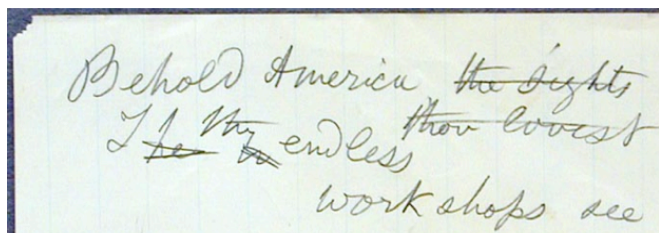 Behold America, the sights
thou lovest
I thy endless
workshops see